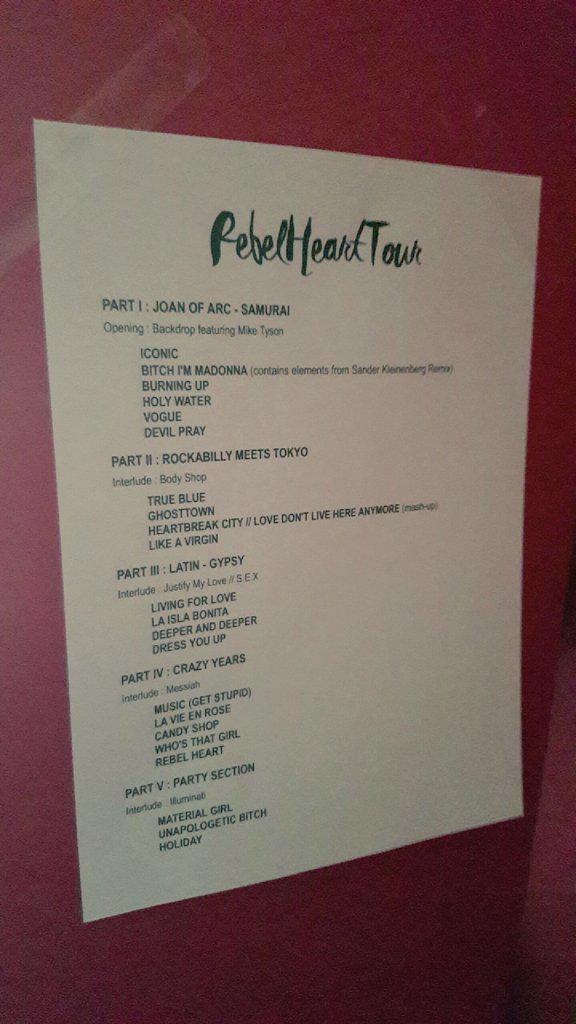 RebelHeartTour
PART I : JOAN OF ARC - SAMURAI
Opening : Backdrop featuring Mike Tyson
ICONIC
BITCH I'M MADONNA (contains elements from Sander Kleinenberg Remix)
BURNING UP
HOLY WATER
VOGUE
DEVIL PRAY
PART II : ROCKABILLY MEETS TOKYO
Interlude : Body Shop
TRUE BLUE
GHOSTTOWN
HEARTBREAK CITY // LOVE DON'T LIVE HERE ANYMORE (mash-up)
LIKE A VIRGIN
PART III : LATIN - GYPSY
Interlude : Justify My Love // S.E.X
LIVING FOR LOVE
LA ISLA BONITA
DEEPER AND DEEPER
DRESS YOU UP
PART IV : CRAZY YEARS
Interlude : Messiah
MUSIC (GET STUPID)
LA VIE EN ROSE
CANDY SHOP
WHO'S THAT GIRL
REBEL HEART
PART V : PARTY SECTION
Interlude : Illuminati
MATERIAL GIRL
UNAPOLOGETIC BITCH
HOLIDAY